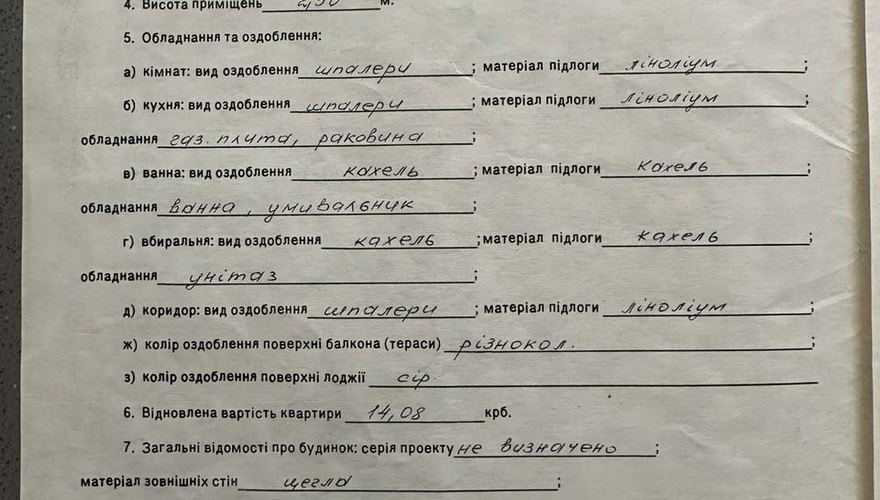 4. Висота приміщень 2,50 м.
5. Обладнання та оздоблення:
а) кімнат: вид оздоблення шпалери; матеріал підлоги лінолiум;
б) кухня: вид оздоблення шпалери; матеріал підлоги лінолiум;
обладнання газ. плита, раковина;
в) ванна: вид оздоблення кахель; матеріал підлоги кахель;
обладнання ванна, умивальник;
г) вбиральня: вид оздоблення кахель; матеріал підлоги кахель;
обладнання унітаз;
д) коридор: вид оздоблення шпалери; матеріал підлоги лінолiум;
ж) колір оздоблення поверхні балкона (тераси) різнокол.;
з) колір оздоблення поверхні лоджії сір.
6. Відновлена вартість квартири 14,08 крб.
7. Загальні відомості про будинок: серія проекту не визначено;
матеріал зовнішніх стін цегла;